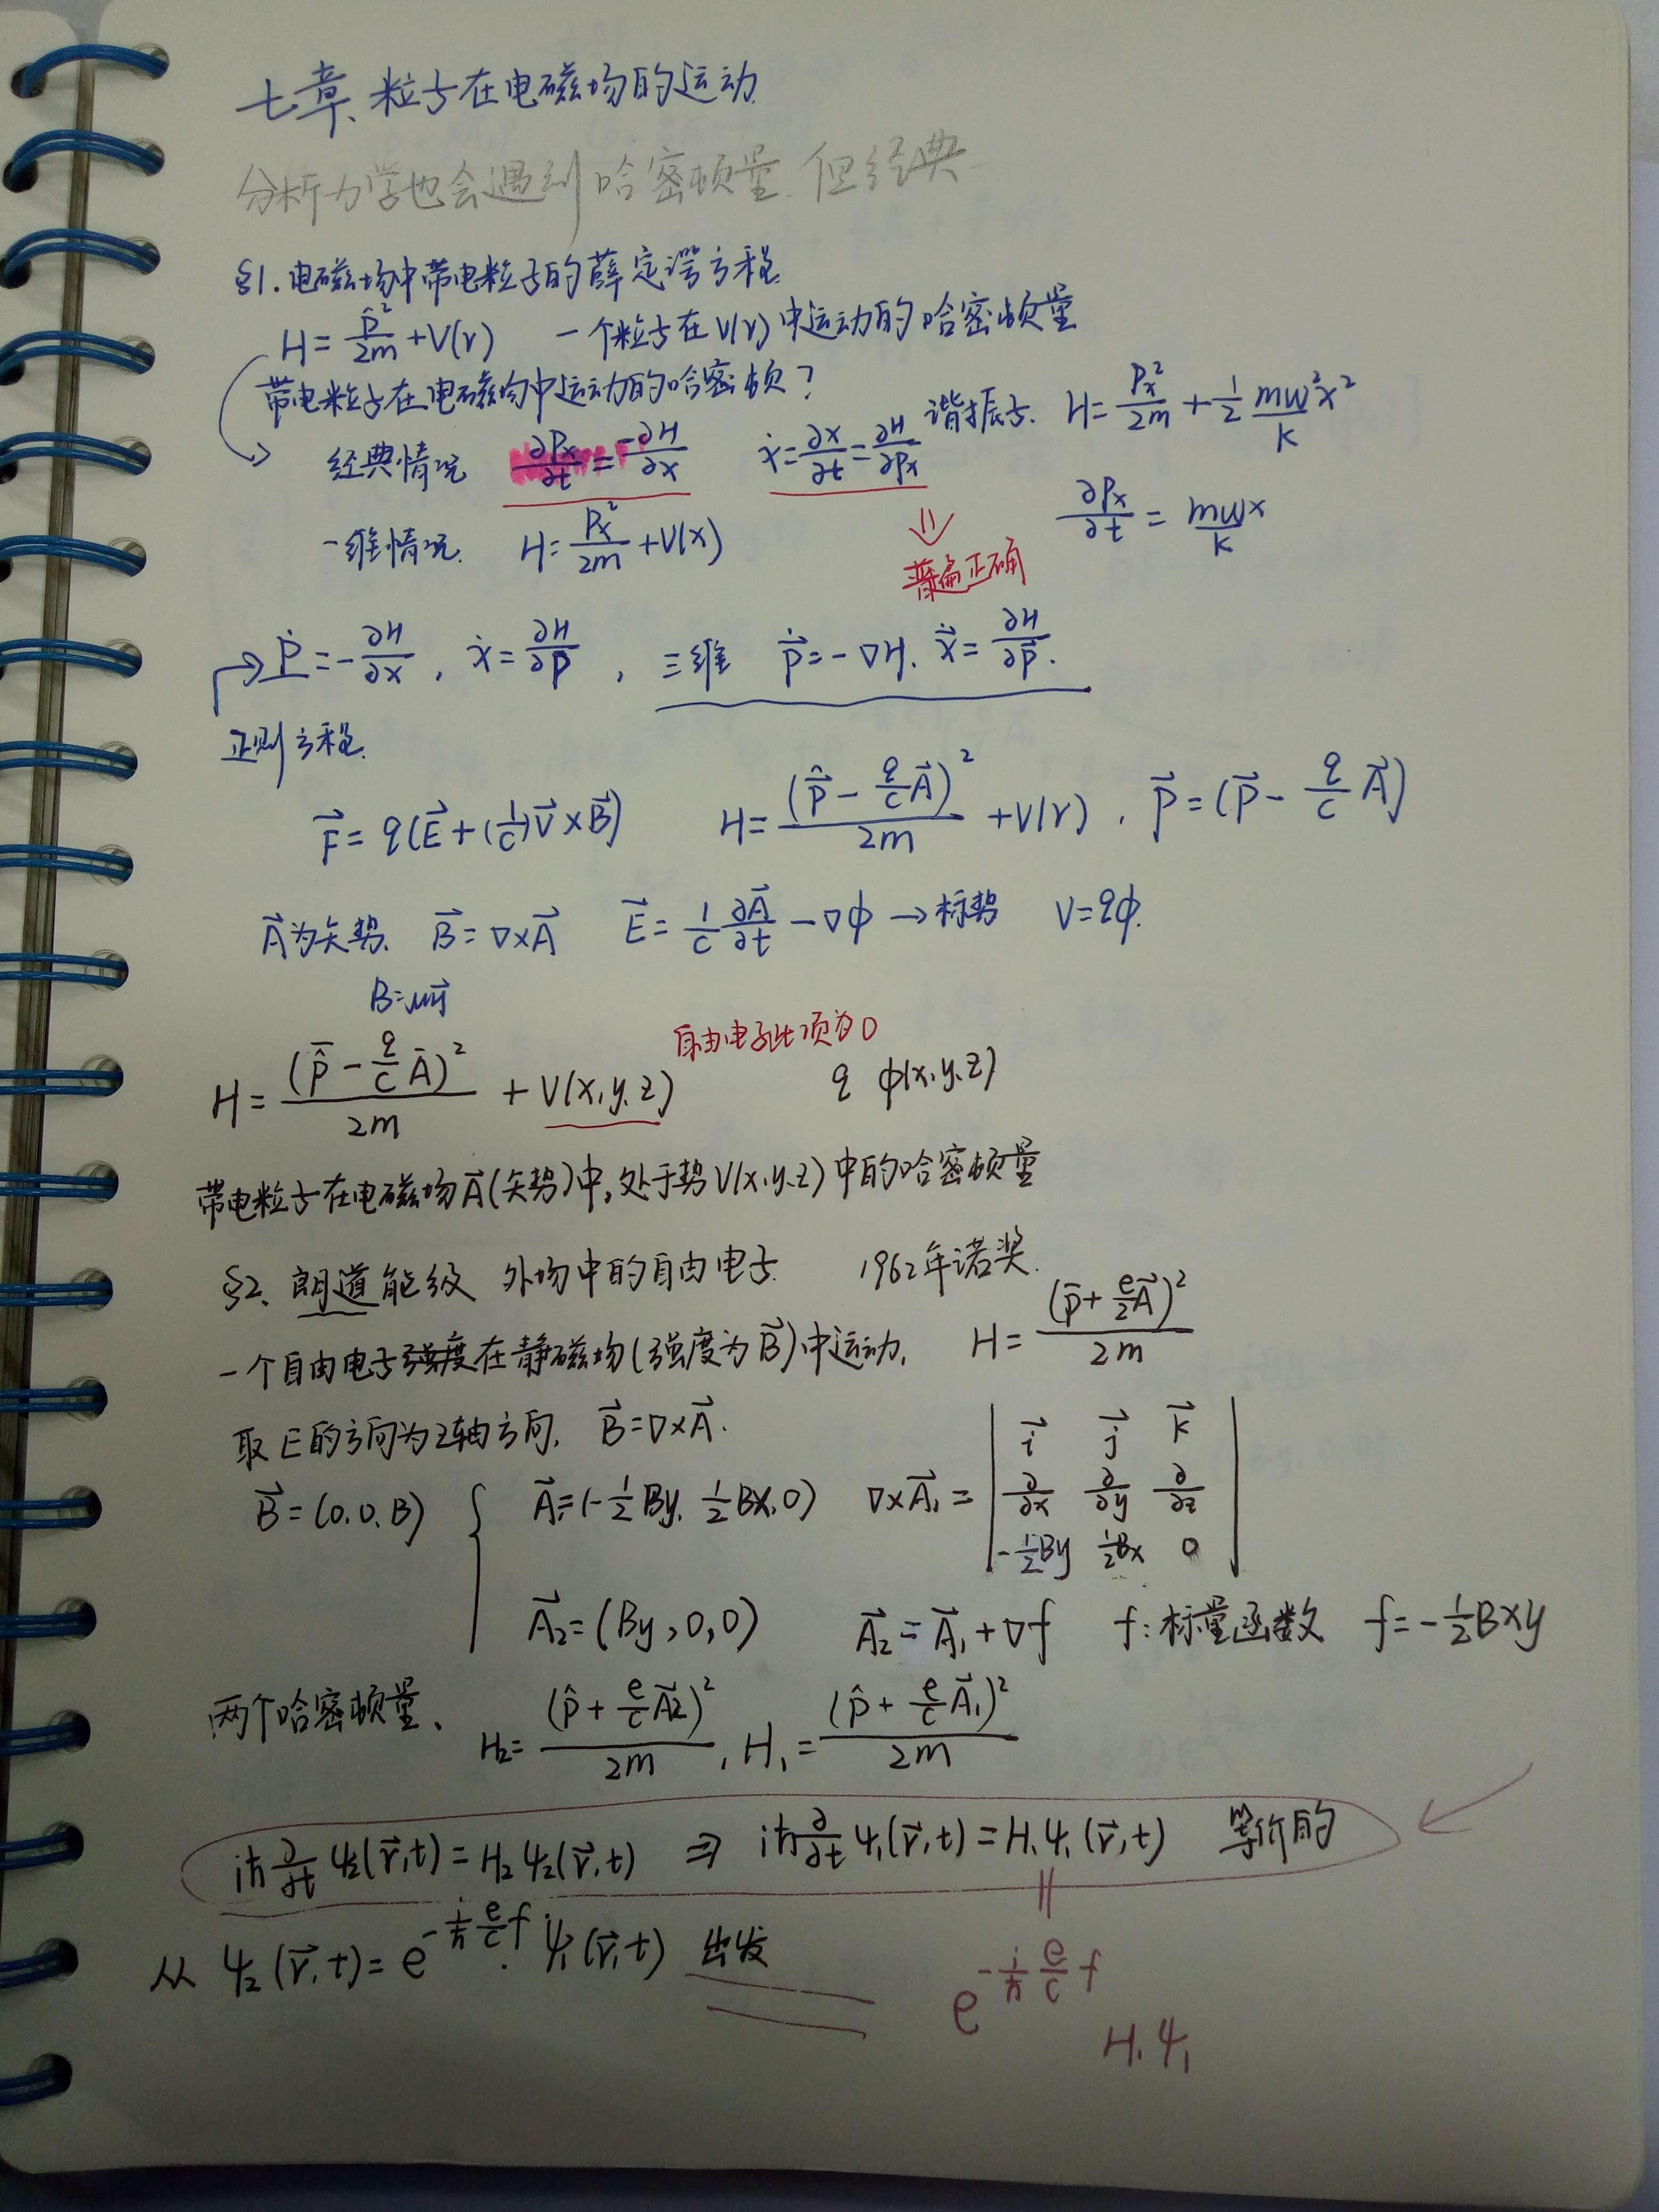 七章、粒子在电磁场的运动
分析力学也会遇到哈密顿量.但经典
§1.电磁场中带电粒子的薛定谔方程
H = p̂²/2m + V(r)    一个粒子在V(r)中运动的哈密顿量
带电粒子在电磁场中运动的哈密顿?
谐振子. H = Px²/2m + 1/2 mw²x²
K
经典情况  ∂Px/∂t = -∂H/∂x   ẋ = ∂x/∂t = ∂H/∂Px
∂Px/∂t = mwx
K
一维情况. H = Px²/2m + V(x)
⇓
普遍正确
→ Ṗ = -∂H/∂x , ẋ = ∂H/∂P , 三维 p⃗̇ = -∇H. x⃗̇ = ∂H/∂p⃗.
正则方程.
F⃗ = q(E⃗ + (1/c)V⃗×B⃗)   H = (p⃗̂ - q/c A⃗)²/2m + V(r) , P⃗ = (P⃗ - q/c A⃗)
A⃗为矢势. B⃗ = ∇×A⃗   E⃗ = 1/c ∂A⃗/∂t - ∇φ → 标势   V = qφ.
自由电子此项为0
H = (p̂ - q/c A)²/2m + V(x,y,z)    q φ(x,y,z)
带电粒子在电磁场A⃗(矢势)中,处于势V(x,y,z)中的哈密顿量
§2、朗道能级 外场中的自由电子.   1962年诺奖.
一个自由电子强度在静磁场(强度为B⃗)中运动, H = (p + e/2 A⃗)²/2m
取E的方向为Z轴方向, B⃗ = ∇×A⃗.
B⃗ = (0,0,B) { A⃗₁ = (-1/2 By, 1/2 Bx, 0)   ∇×A⃗₁ = | i⃗ j⃗ k⃗
∂/∂x ∂/∂y ∂/∂z
-1/2By 1/2Bx 0 |
A⃗₂ = (By,0,0)   A⃗₂ = A⃗₁ + ∇f   f:标量函数 f = -1/2 Bxy
两个哈密顿量、 H₂ = (p̂ + e/c A⃗₂)²/2m , H₁ = (p̂ + e/c A⃗₁)²/2m
iħ ∂/∂t ψ₂(r⃗,t) = H₂ψ₂(r⃗,t) ⇒ iħ ∂/∂t ψ₁(r⃗,t) = H₁ψ₁(r⃗,t) 等价的
从 ψ₂(r⃗,t) = e^(-i/ħ e/c f) · ψ₁(r⃗,t) 出发
e^(-i/ħ e/c f)
H₁ψ₁